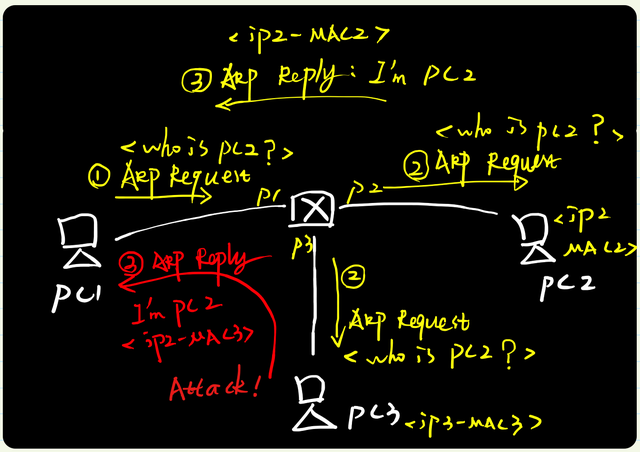 <ip2-MAC2>
③ ARP Reply: I'm PC2
<who is pc2?>
① ARP Request
<who is pc2?>
② ARP Request
P1
P2
P3
PC1
<ip2
MAC2>
PC2
③ ARP Reply
I'm PC2
<ip2-MAC3>
Attack!
②
ARP Request
<who is pc2?>
PC3 <ip3-MAC3>